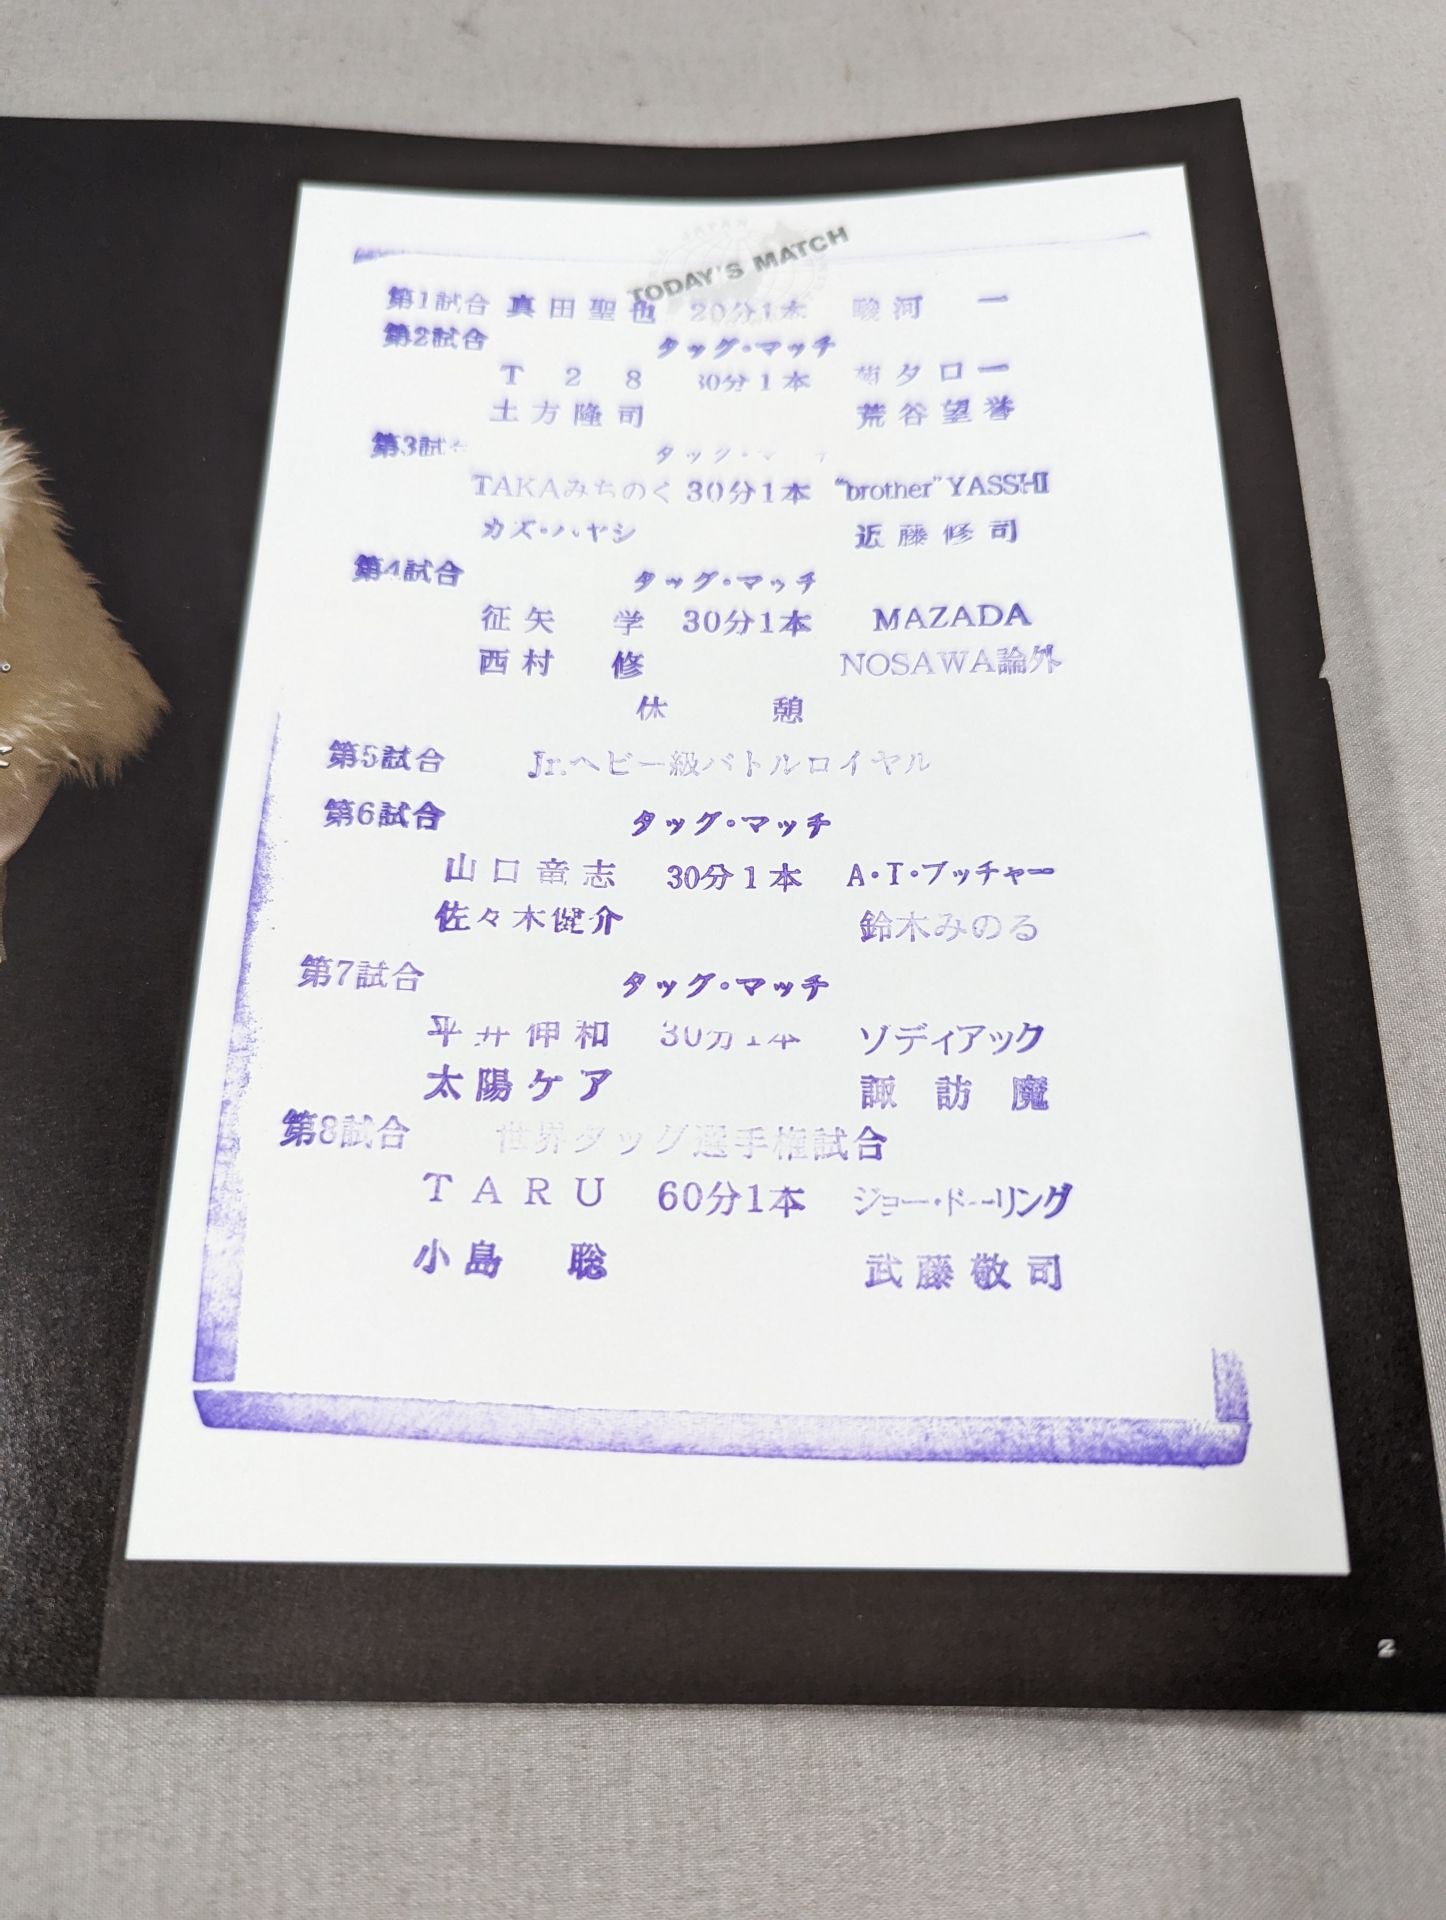 TODAY'S MATCH
第1試合 真田聖也 20分1本 駿河 一
第2試合 タッグ・マッチ
T28 30分1本 菊タロー
土方隆司 荒谷望誉
第3試合 タッグ・マッチ
TAKAみちのく 30分1本 "brother"YASSHI
カズ・ハヤシ 近藤修司
第4試合 タッグ・マッチ
征矢 学 30分1本 MAZADA
西村 修 NOSAWA論外
休 憩
第5試合 Jr.ヘビー級バトルロイヤル
第6試合 タッグ・マッチ
山口竜志 30分1本 A・T・ブッチャー
佐々木健介 鈴木みのる
第7試合 タッグ・マッチ
平井伸和 30分1本 ゾディアック
太陽ケア 諏訪魔
第8試合 世界タッグ選手権試合
TARU 60分1本 ジョー・ドーリング
小島 聡 武藤敬司
2